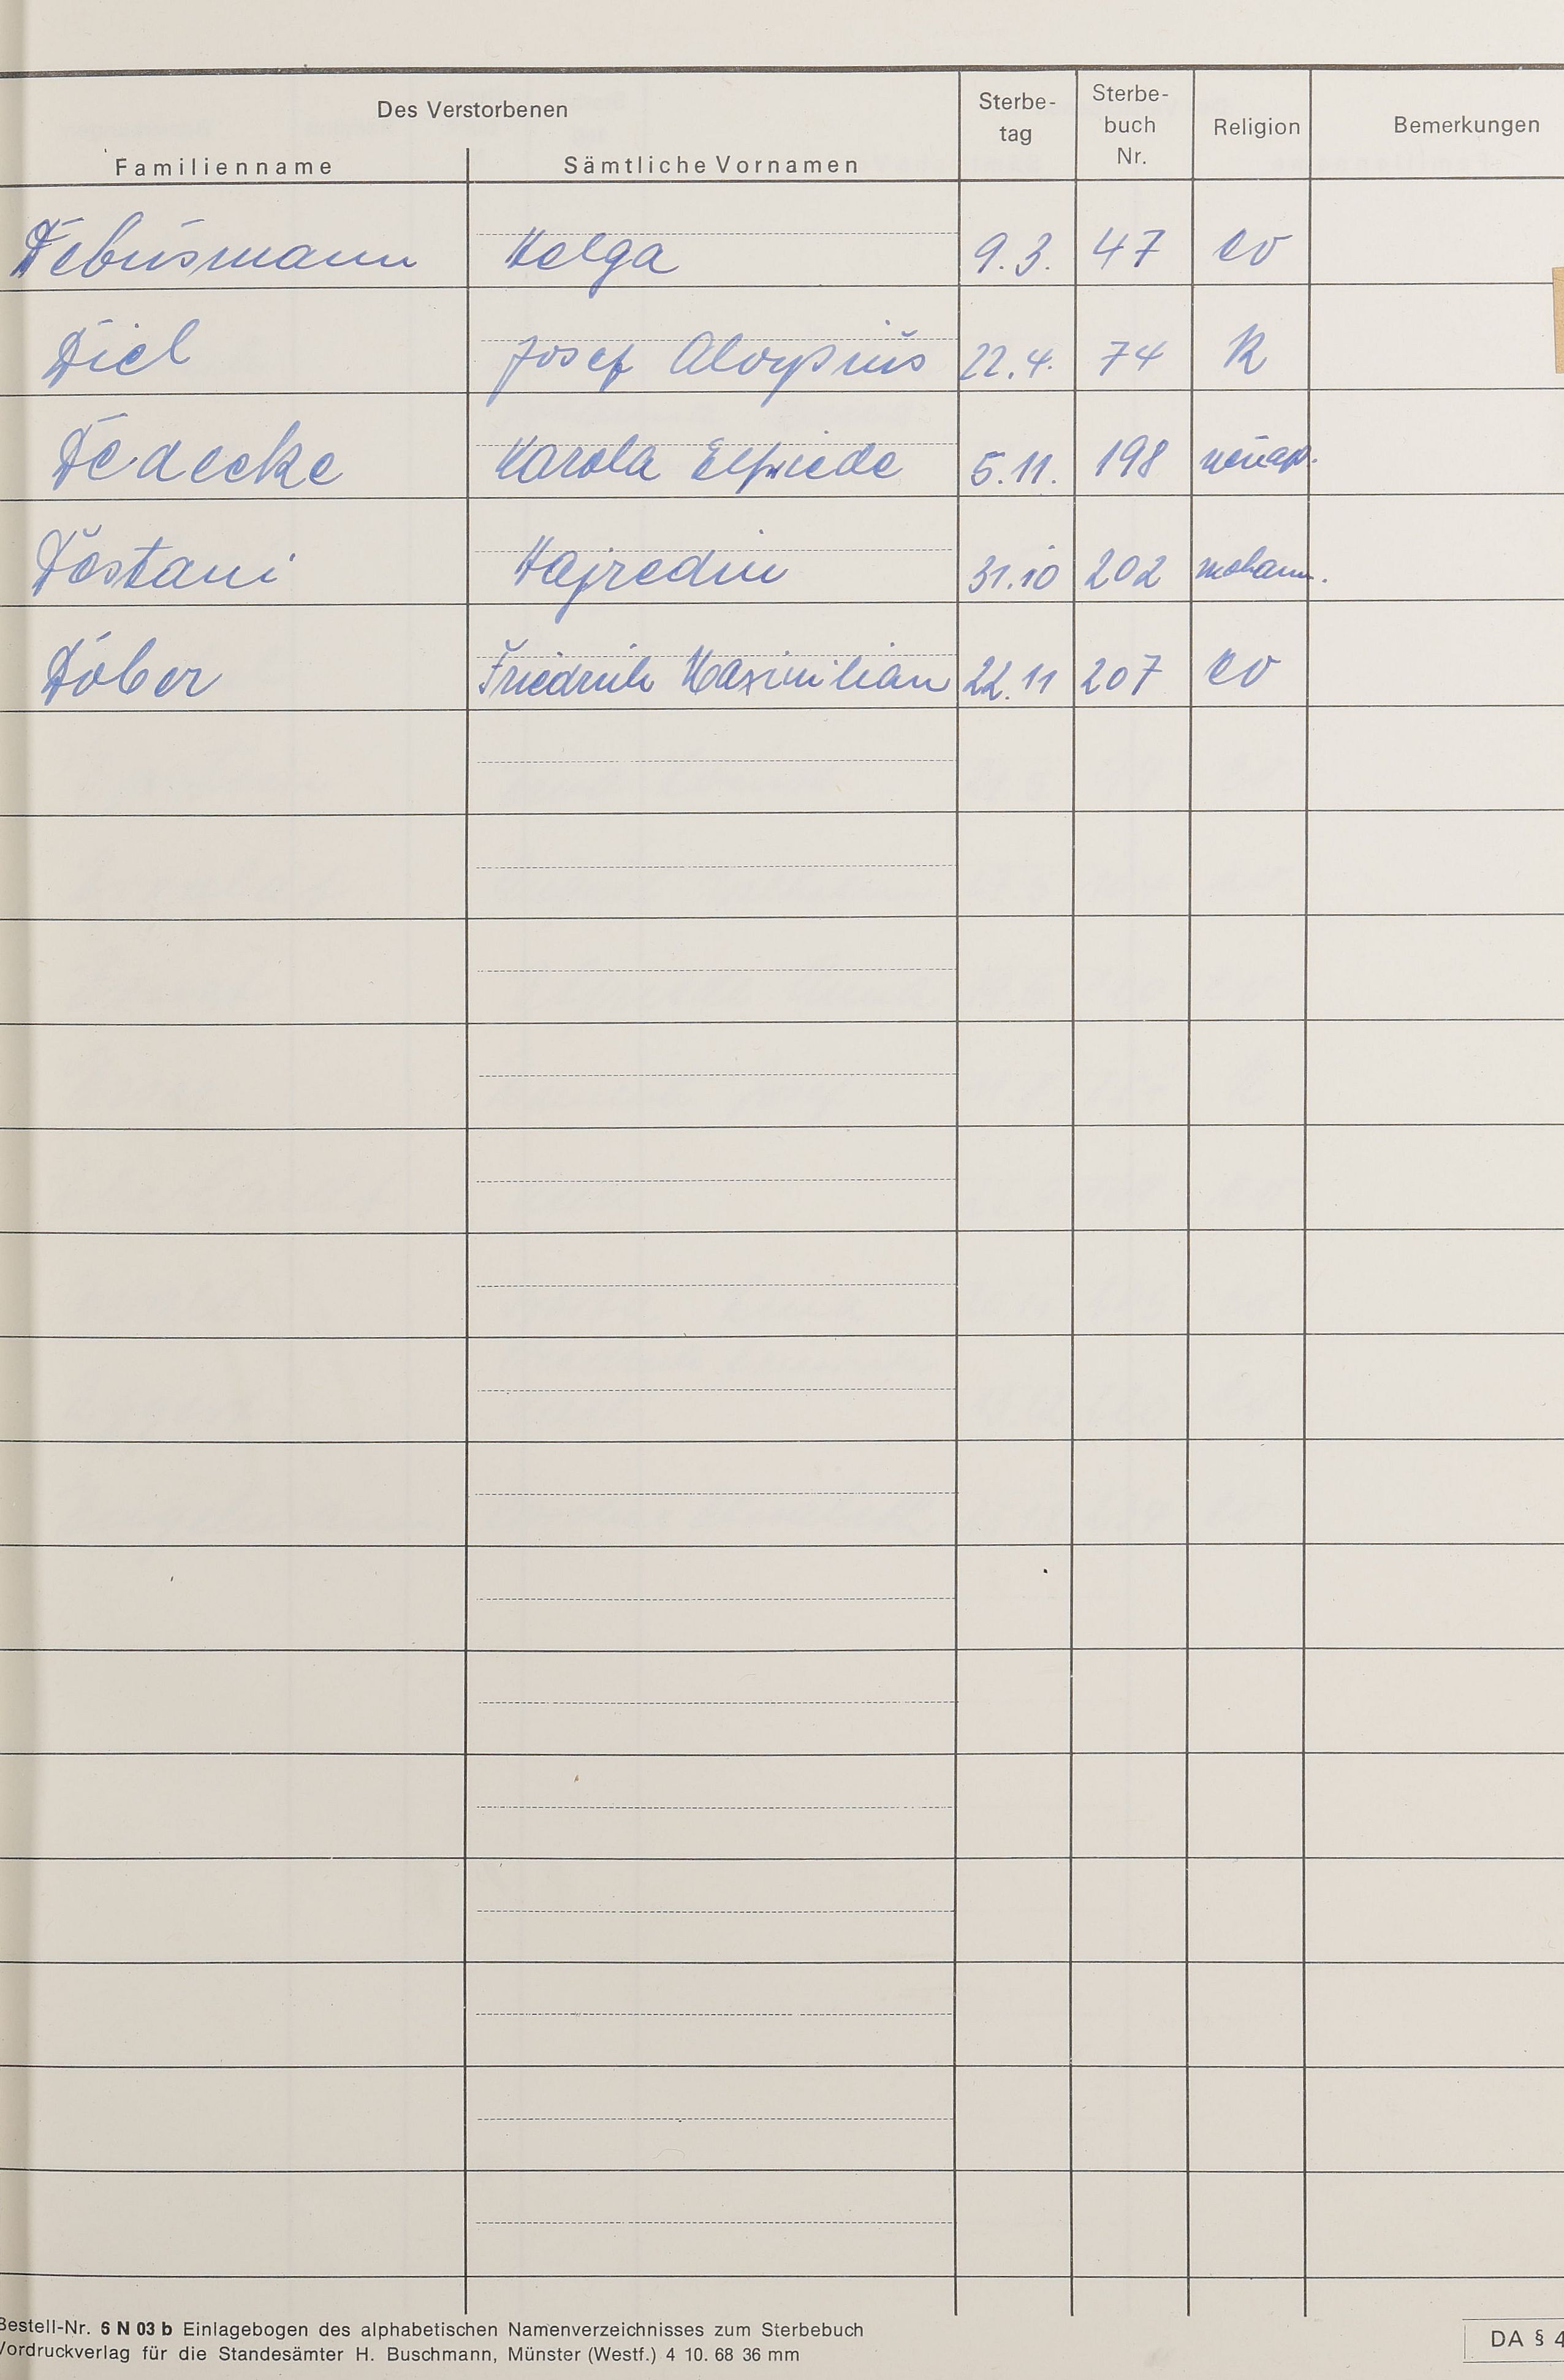 Des Verstorbenen
Familienname Sämtliche Vornamen Sterbe-
tag Sterbe-
buch
Nr. Religion Bemerkungen
Debusmann Helga 9.3. 47 ev
Diel Josef Aloysius 22.4. 74 K
Dedecke Karola Elfriede 5.11. 198 neuap.
Dostani Hajredin 31.10 202 moham.
Dober Friedrich Maximilian 22.11 207 ev
Bestell-Nr. 6 N 03 b Einlagebogen des alphabetischen Namenverzeichnisses zum Sterbebuch
Vordruckverlag für die Standesämter H. Buschmann, Münster (Westf.) 4 10. 68 36 mm
DA § 4